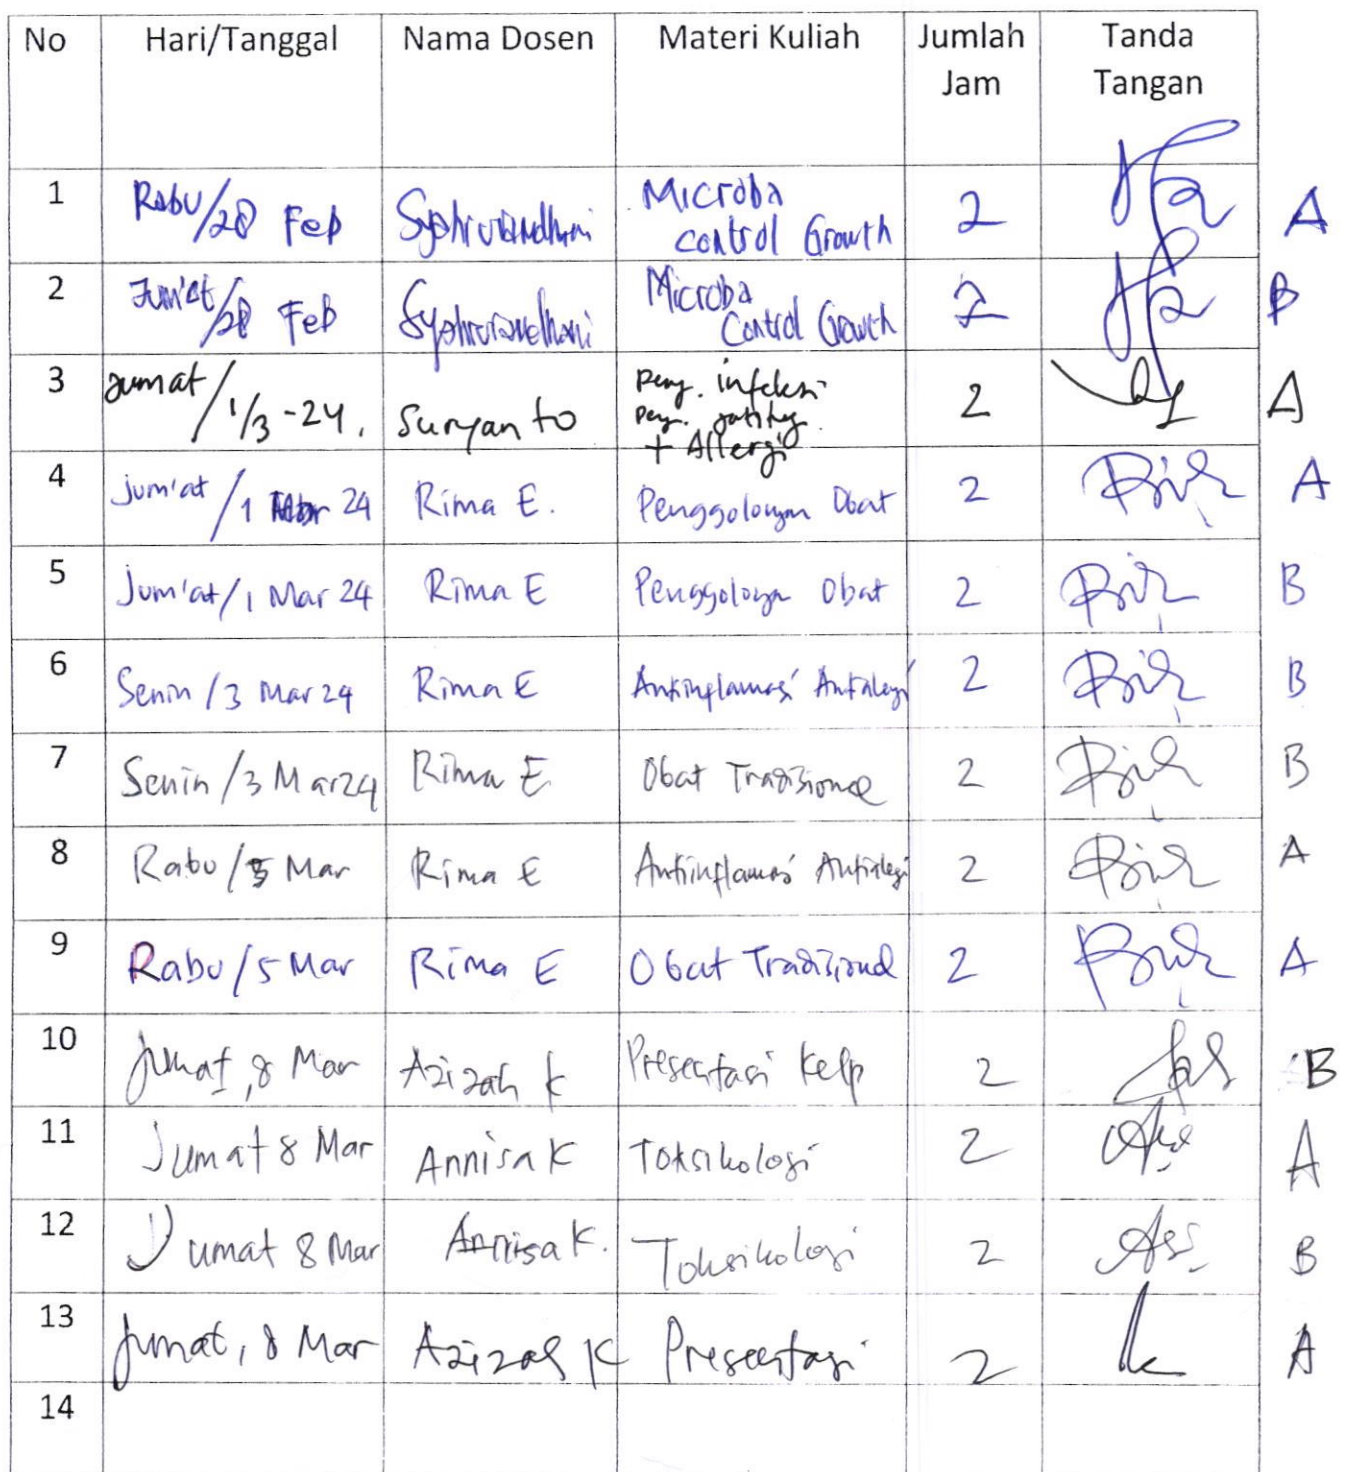 No Hari/Tanggal Nama Dosen Materi Kuliah Jumlah Jam Tanda Tangan
1 Rabu/28 Feb Syahruramdhani Microba control Growth 2 A
2 Jum'at/28 Feb Syahruramdhani Microba Control Growth 2 B
3 Jumat/1/3-24. Suryanto Peny. infeksi Peny. + Allergi 2 A
4 Jum'at/1 Mar 24 Rima E. Penggolongan Obat 2 A
5 Jum'at/1 Mar 24 Rima E Penggolongan Obat 2 B
6 Senin/3 Mar 24 Rima E Antiinflamasi Antialergi 2 B
7 Senin/3 Mar 24 Rima E Obat Tradisional 2 B
8 Rabu/5 Mar Rima E Antiinflamasi Antialergi 2 A
9 Rabu/5 Mar Rima E Obat Tradisional 2 A
10 Jumat, 8 Mar Azizah K Presentasi Kelp 2 B
11 Jumat 8 Mar Annisa K Toksikologi 2 A
12 Jumat 8 Mar Annisa K. Toksikologi 2 B
13 Jumat, 8 Mar Azizah K Presentasi 2 A
14